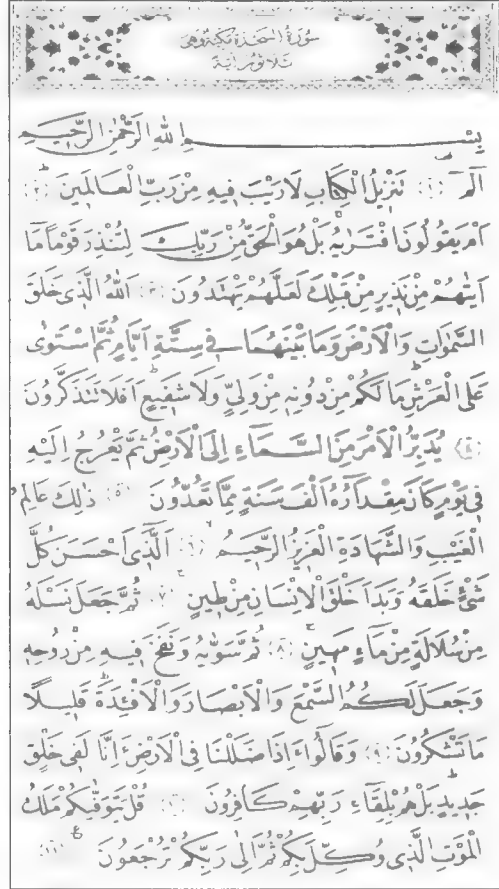 سُورَةُ السَّجْدَةِ مَكِّيَّةٌ وَهِىَ
ثَلَاثُونَ اٰيَةً
بِسْمِ اللّٰهِ الرَّحْمٰنِ الرَّحِيمِ
الٓمٓ ﴿١﴾ تَنْزِيلُ الْكِتَابِ لَا رَيْبَ فِيهِ مِنْ رَبِّ الْعَالَمِينَ ﴿٢﴾
اَمْ يَقُولُونَ افْتَرٰيهُ بَلْ هُوَ الْحَقُّ مِنْ رَبِّكَ لِتُنْذِرَ قَوْمًا مَٓا
اَتٰيهُمْ مِنْ نَذِيرٍ مِنْ قَبْلِكَ لَعَلَّهُمْ يَهْتَدُونَ ﴿٣﴾ اَللّٰهُ الَّذِى خَلَقَ
السَّمٰوَاتِ وَالْاَرْضَ وَمَا بَيْنَهُمَا فِى سِتَّةِ اَيَّامٍ ثُمَّ اسْتَوٰى
عَلَى الْعَرْشِ مَا لَكُمْ مِنْ دُونِهِ مِنْ وَلِىٍّ وَلَا شَفِيعٍ اَفَلَا تَتَذَكَّرُونَ
﴿٤﴾ يُدَبِّرُ الْاَمْرَ مِنَ السَّمَٓاءِ اِلَى الْاَرْضِ ثُمَّ يَعْرُجُ اِلَيْهِ
فِى يَوْمٍ كَانَ مِقْدَارُهُٓ اَلْفَ سَنَةٍ مِمَّا تَعُدُّونَ ﴿٥﴾ ذٰلِكَ عَالِمُ
الْغَيْبِ وَالشَّهَادَةِ الْعَزِيزُ الرَّحِيمُ ﴿٦﴾ اَلَّذِٓى اَحْسَنَ كُلَّ
شَىْءٍ خَلَقَهُ وَبَدَاَ خَلْقَ الْاِنْسَانِ مِنْ طِينٍ ﴿٧﴾ ثُمَّ جَعَلَ نَسْلَهُ
مِنْ سُلَالَةٍ مِنْ مَٓاءٍ مَهِينٍ ﴿٨﴾ ثُمَّ سَوّٰيهُ وَنَفَخَ فِيهِ مِنْ رُوحِهِ
وَجَعَلَ لَكُمُ السَّمْعَ وَالْاَبْصَارَ وَالْاَفْئِدَةَ قَلِيلًا
مَا تَشْكُرُونَ ﴿٩﴾ وَقَالُٓوا ءَاِذَا ضَلَلْنَا فِى الْاَرْضِ ءَاِنَّا لَفِى خَلْقٍ
جَدِيدٍ بَلْ هُمْ بِلِقَٓاءِ رَبِّهِمْ كَافِرُونَ ﴿١٠﴾ قُلْ يَتَوَفّٰيكُمْ مَلَكُ
الْمَوْتِ الَّذِى وُكِّلَ بِكُمْ ثُمَّ اِلٰى رَبِّكُمْ تُرْجَعُونَ ﴿١١﴾